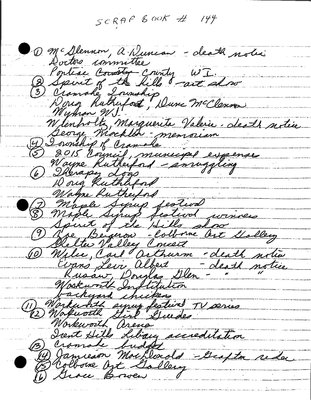 SCRAP BOOK # 144
① McGlennon, A Duncan - death notice
Doctor committee
Pontiac County W.I.
② Spirit of the hills - art show
③ Cramahe Township
Doug Rutherford, Dune McGlennon
Wyman W.I.
Marguerite Valerie - death notice
George - memoriam
④ Township of Cramahe
⑤ 2015 Council municipal expenses
Wayne Rutherford - smuggling
⑥ Therapy dogs
Doug Rutherford
Wayne Rutherford
⑦ Maple Syrup festival
⑧ Maple Syrup festival winners
Spirit of the Hills show
⑨ Ree Bergman - Colborne Art Gallery
Shelter Valley Concert
⑩ Wiles, Carl Arthurm - death notice
Levi Albert - death notice
Rusaw, Douglas Glen - "
Warkworth Institution
backyard chickens
⑪ Warkworth syrup festival TV series
⑫ Warkworth Girl Guides
Warkworth Arena
Trent Hills library accreditation
⑬ Cramahe budget
⑭ Jamieson MacDonald - Grafton rider
⑮ Colborne Art Gallery
⑯ Grace Bowen